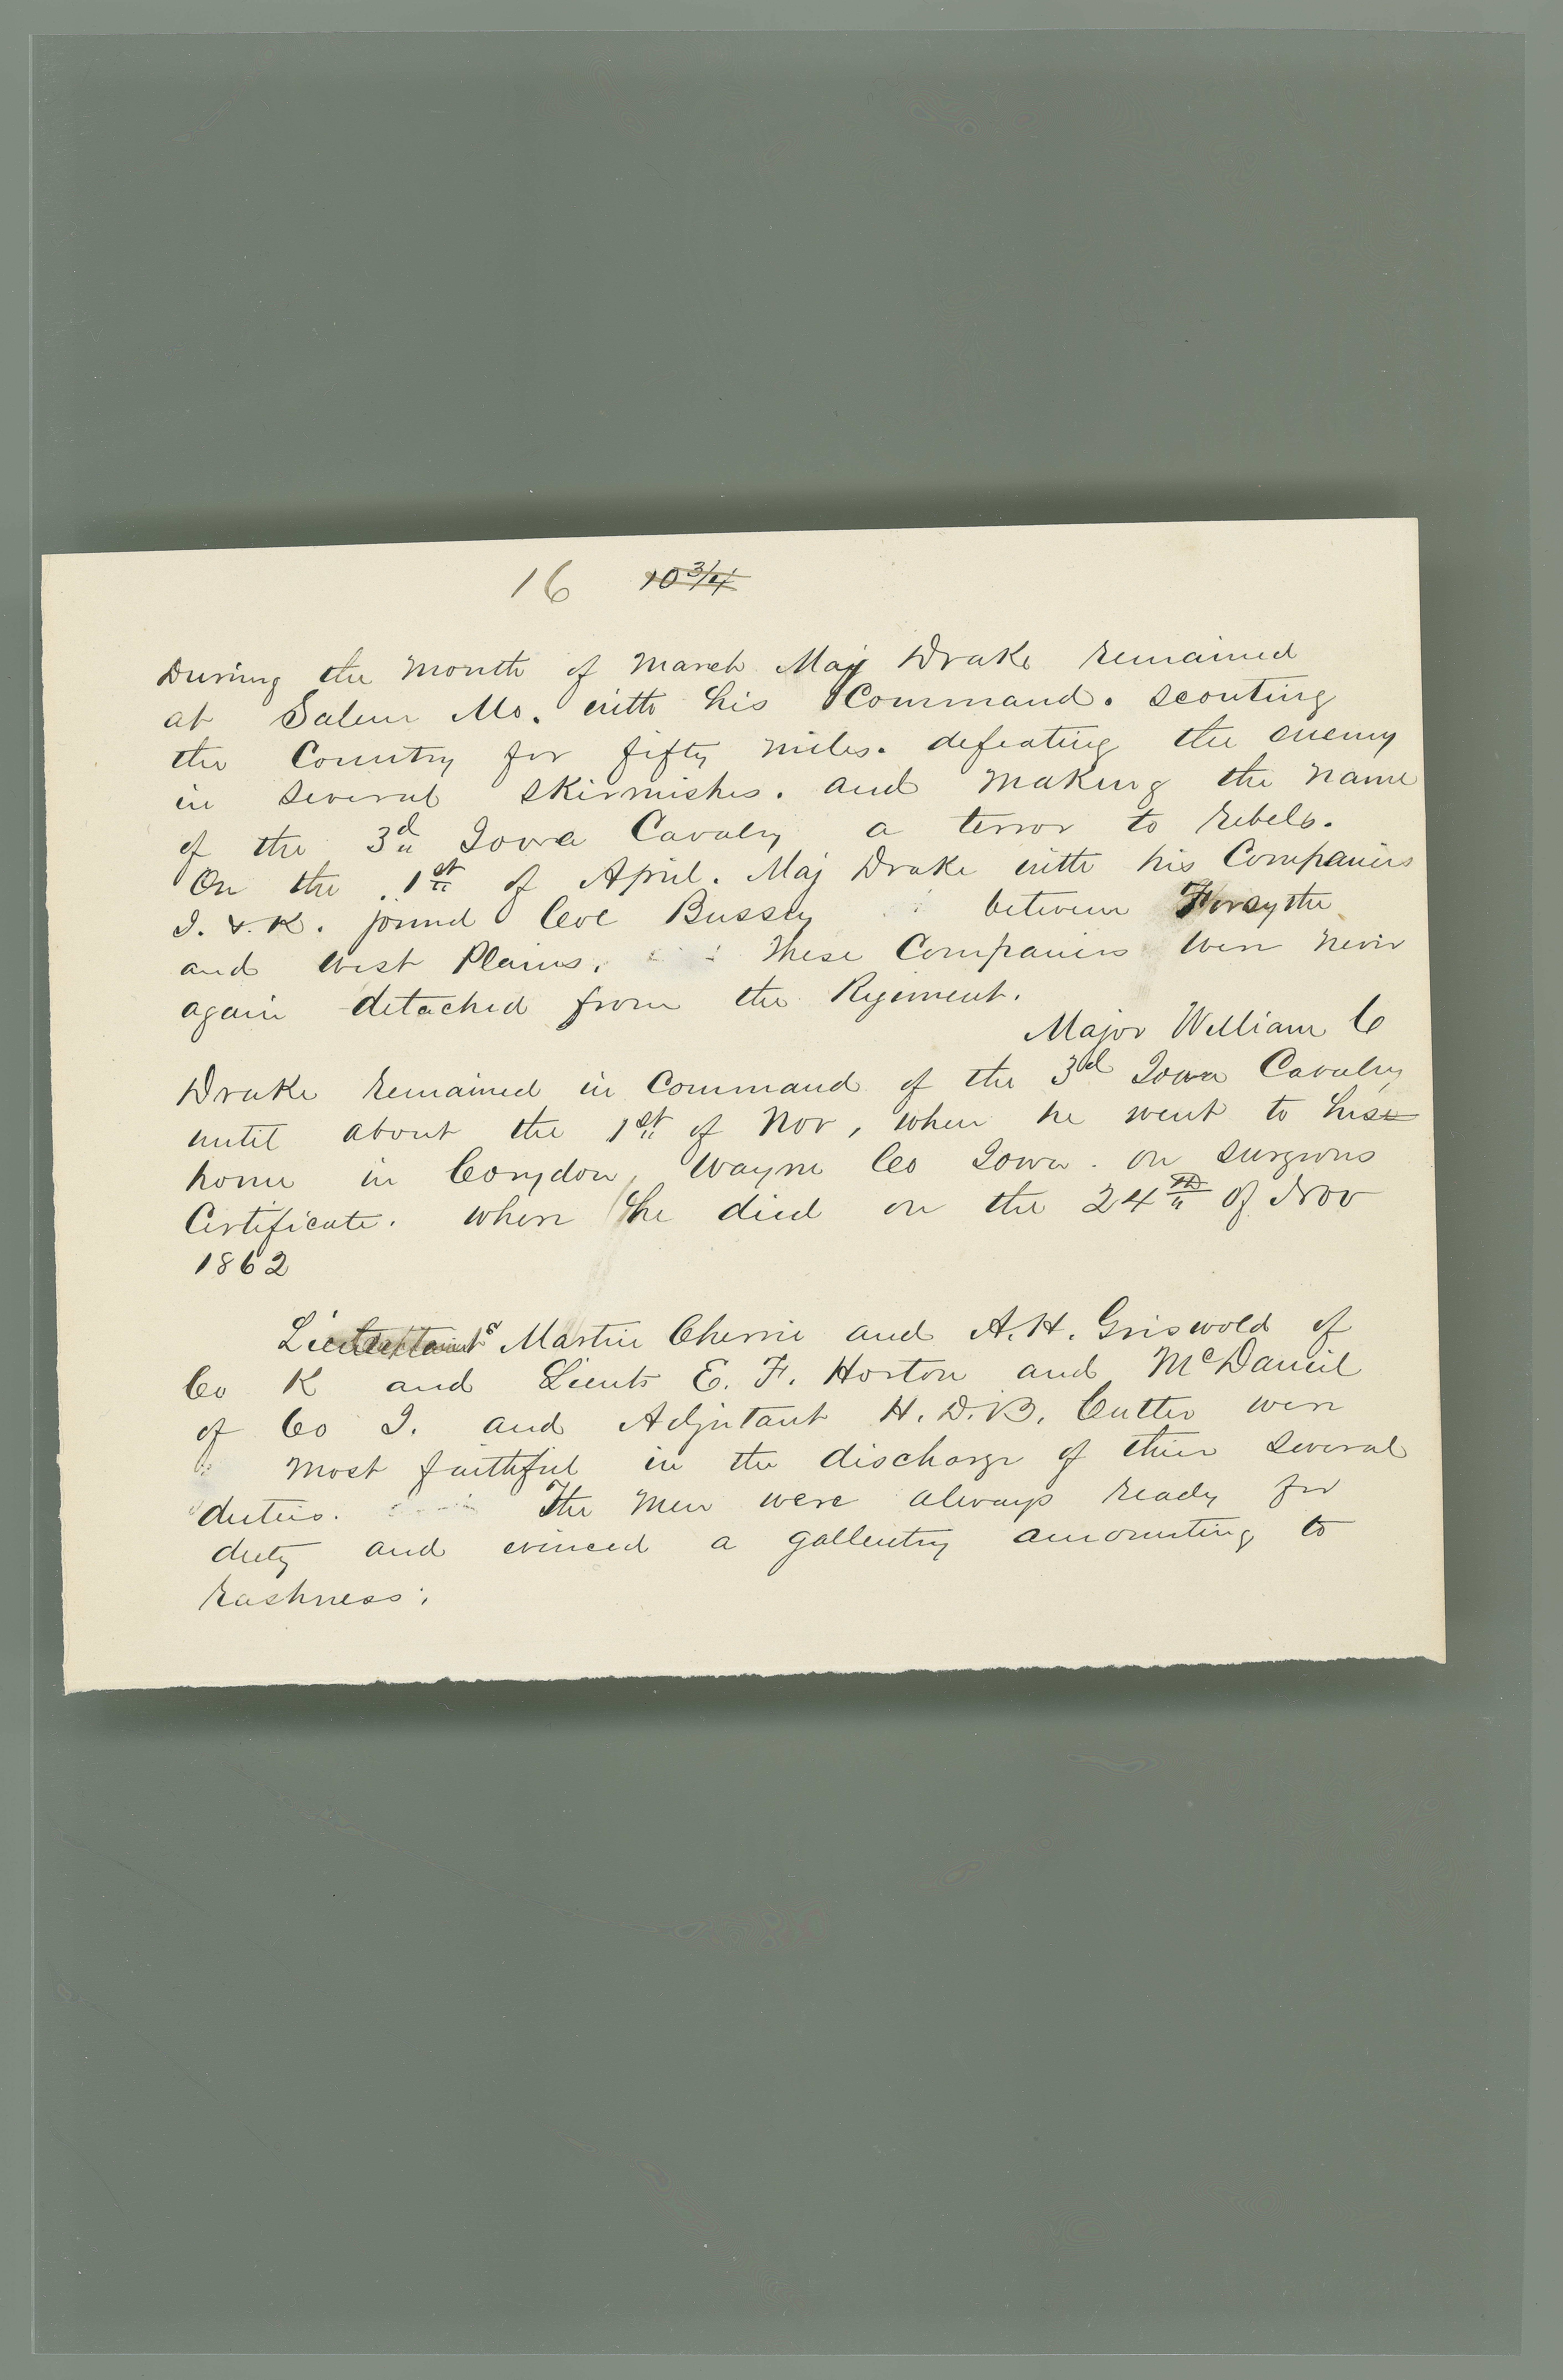 16 10 3/4
During the Month of March Maj Drake remained
at Salem Mo. with his Command. scouting
the Country for fifty miles. defeating the enemy
in several skirmishes. and Making the name
of the 3d Iowa Cavalry a terror to rebels.
On the 1st of April. Maj Drake with his Companies
I. & K. joined Col Bussey between Forsythe
and West Plains. These Companies were never
again detached from the Regiment.
Major William C
Drake remained in Command of the 3d Iowa Cavalry
until about the 1st of Nov, when he went to his
home in Corydon, Wayne Co Iowa. on surgeons
Certificate. where he died on the 24th of Nov
1862
Lieutenants Martin Cherrie and A. H. Griswold of
Co K and Lieuts E. F. Horton and McDaneil
of Co I. and Adjutant H. D. B. Cutler were
most faithful in the discharge of their several
duties. The men were always ready for
duty and evinced a gallentry amounting to
rashness.